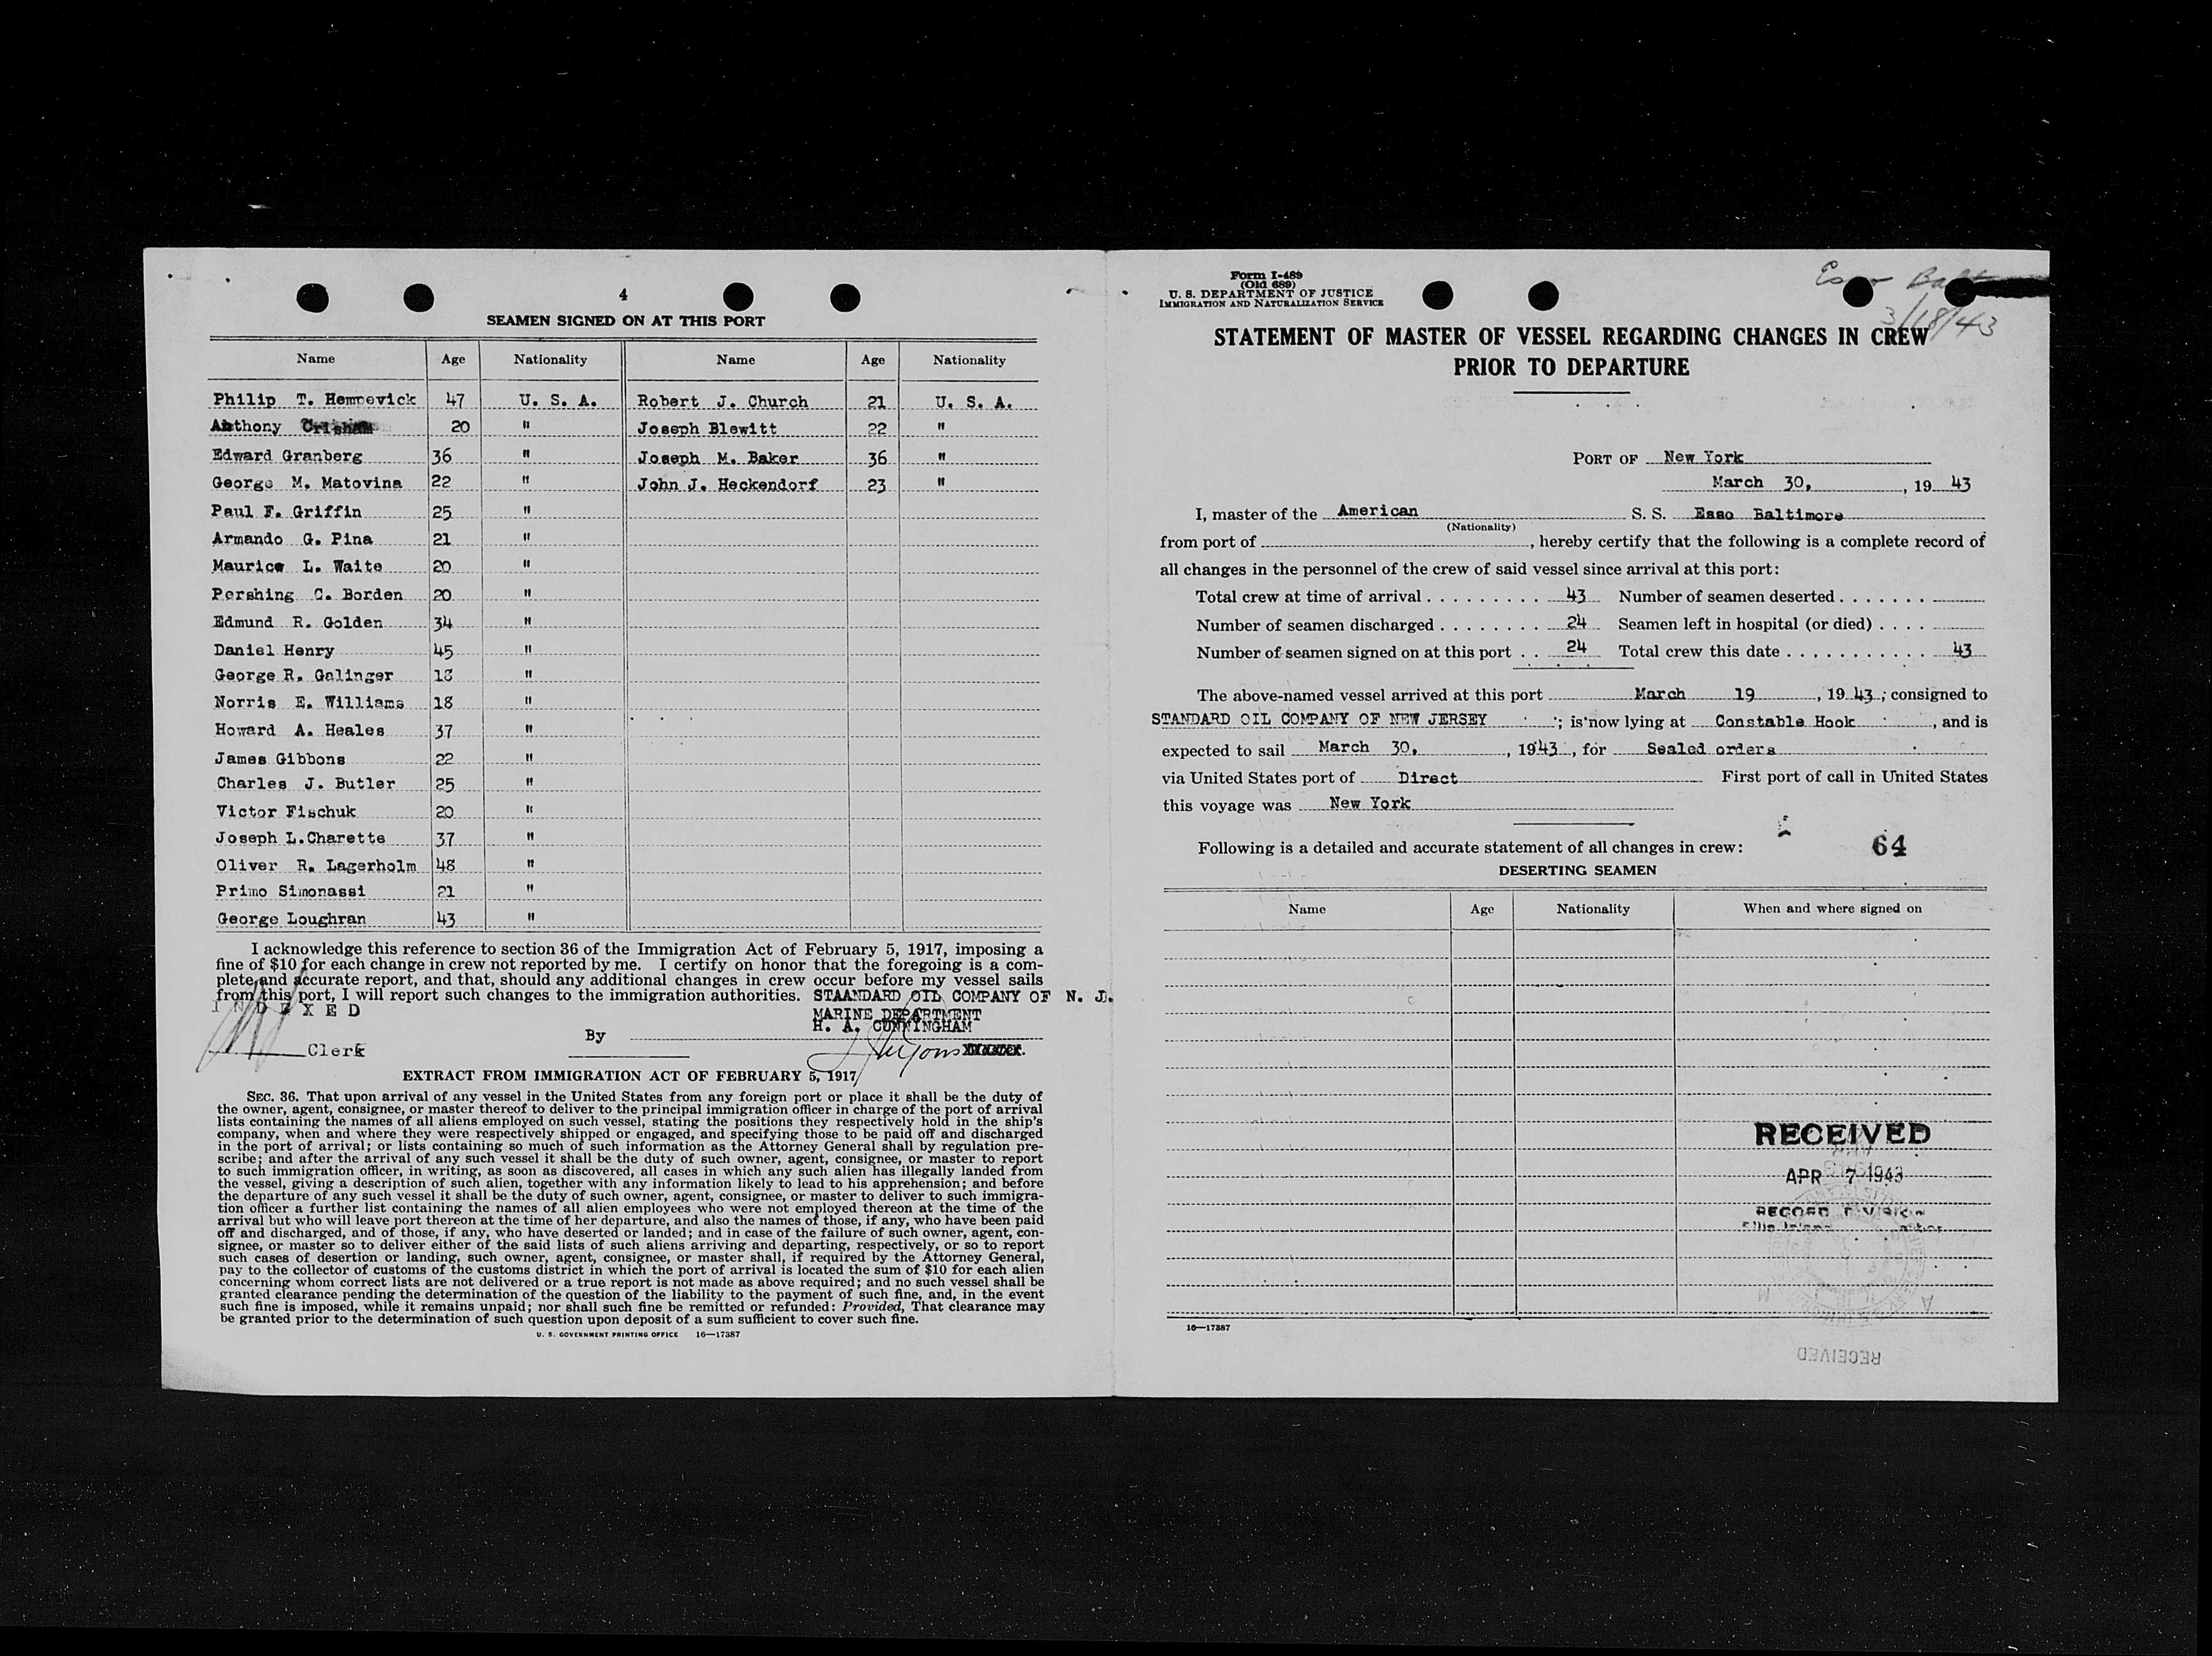 4
SEAMEN SIGNED ON AT THIS PORT
Name Age Nationality Name Age Nationality
Philip T. Hemnevick 47 U. S. A. Robert J. Church 21 U. S. A.
Anthony Crisham 20 " Joseph Blewitt 22 "
Edward Granberg 36 " Joseph M. Baker 36 "
George M. Matovina 22 " John J. Heckendorf 23 "
Paul F. Griffin 25 "
Armando G. Pina 21 "
Maurice L. Waite 20 "
Pershing C. Borden 20 "
Edmund R. Golden 34 "
Daniel Henry 45 "
George R. Galinger 18 "
Norris E. Williams 18 "
Howard A. Heales 37 "
James Gibbons 22 "
Charles J. Butler 25 "
Victor Fischuk 20 "
Joseph L.Charette 37 "
Oliver R. Lagerholm 48 "
Primo Simonassi 21 "
George Loughran 43 "
I acknowledge this reference to section 36 of the Immigration Act of February 5, 1917, imposing a
fine of $10 for each change in crew not reported by me. I certify on honor that the foregoing is a com-
plete and accurate report, and that, should any additional changes in crew occur before my vessel sails
from this port, I will report such changes to the immigration authorities. STAANDARD OIL COMPANY OF N. J.
INDEXED
MARINE DEPARTMENT
H. A. CUNNINGHAM
By
Clerk
EXTRACT FROM IMMIGRATION ACT OF FEBRUARY 5, 1917
SEC. 36. That upon arrival of any vessel in the United States from any foreign port or place it shall be the duty of
the owner, agent, consignee, or master thereof to deliver to the principal immigration officer in charge of the port of arrival
lists containing the names of all aliens employed on such vessel, stating the positions they respectively hold in the ship's
company, when and where they were respectively shipped or engaged, and specifying those to be paid off and discharged
in the port of arrival; or lists containing so much of such information as the Attorney General shall by regulation pre-
scribe; and after the arrival of any such vessel it shall be the duty of such owner, agent, consignee, or master to report
to such immigration officer, in writing, as soon as discovered, all cases in which any such alien has illegally landed from
the vessel, giving a description of such alien, together with any information likely to lead to his apprehension; and before
the departure of any such vessel it shall be the duty of such owner, agent, consignee, or master to deliver to such immigra-
tion officer a further list containing the names of all alien employees who were not employed thereon at the time of the
arrival but who will leave port thereon at the time of her departure, and also the names of those, if any, who have been paid
off and discharged, and of those, if any, who have deserted or landed; and in case of the failure of such owner, agent, con-
signee, or master so to deliver either of the said lists of such aliens arriving and departing, respectively, or so to report
such cases of desertion or landing, such owner, agent, consignee, or master shall, if required by the Attorney General,
pay to the collector of customs of the customs district in which the port of arrival is located the sum of $10 for each alien
concerning whom correct lists are not delivered or a true report is not made as above required; and no such vessel shall be
granted clearance pending the determination of the question of the liability to the payment of such fine, and, in the event
such fine is imposed, while it remains unpaid; nor shall such fine be remitted or refunded: Provided, That clearance may
be granted prior to the determination of such question upon deposit of a sum sufficient to cover such fine.
U. S. GOVERNMENT PRINTING OFFICE 16—17387
Form I-489
(Old 689)
U. S. DEPARTMENT OF JUSTICE
IMMIGRATION AND NATURALIZATION SERVICE
Esso Balt
3/18/43
STATEMENT OF MASTER OF VESSEL REGARDING CHANGES IN CREW
PRIOR TO DEPARTURE
PORT OF New York
March 30, , 19 43
I, master of the American S. S. Esso Baltimore
(Nationality)
from port of , hereby certify that the following is a complete record of
all changes in the personnel of the crew of said vessel since arrival at this port:
Total crew at time of arrival . . . . . . . . . 43 Number of seamen deserted . . . . . . .
Number of seamen discharged . . . . . . . . 24 Seamen left in hospital (or died) . . . .
Number of seamen signed on at this port . . 24 Total crew this date . . . . . . . . . . . . 43
The above-named vessel arrived at this port March 19 , 19 43 ; consigned to
STANDARD OIL COMPANY OF NEW JERSEY ; is now lying at Constable Hook , and is
expected to sail March 30, , 1943 , for Sealed orders
via United States port of Direct First port of call in United States
this voyage was New York
Following is a detailed and accurate statement of all changes in crew: 64
DESERTING SEAMEN
Name Age Nationality When and where signed on
RECEIVED
APR 7 1943
RECORD DIVISION
16—17387
RECEIVED